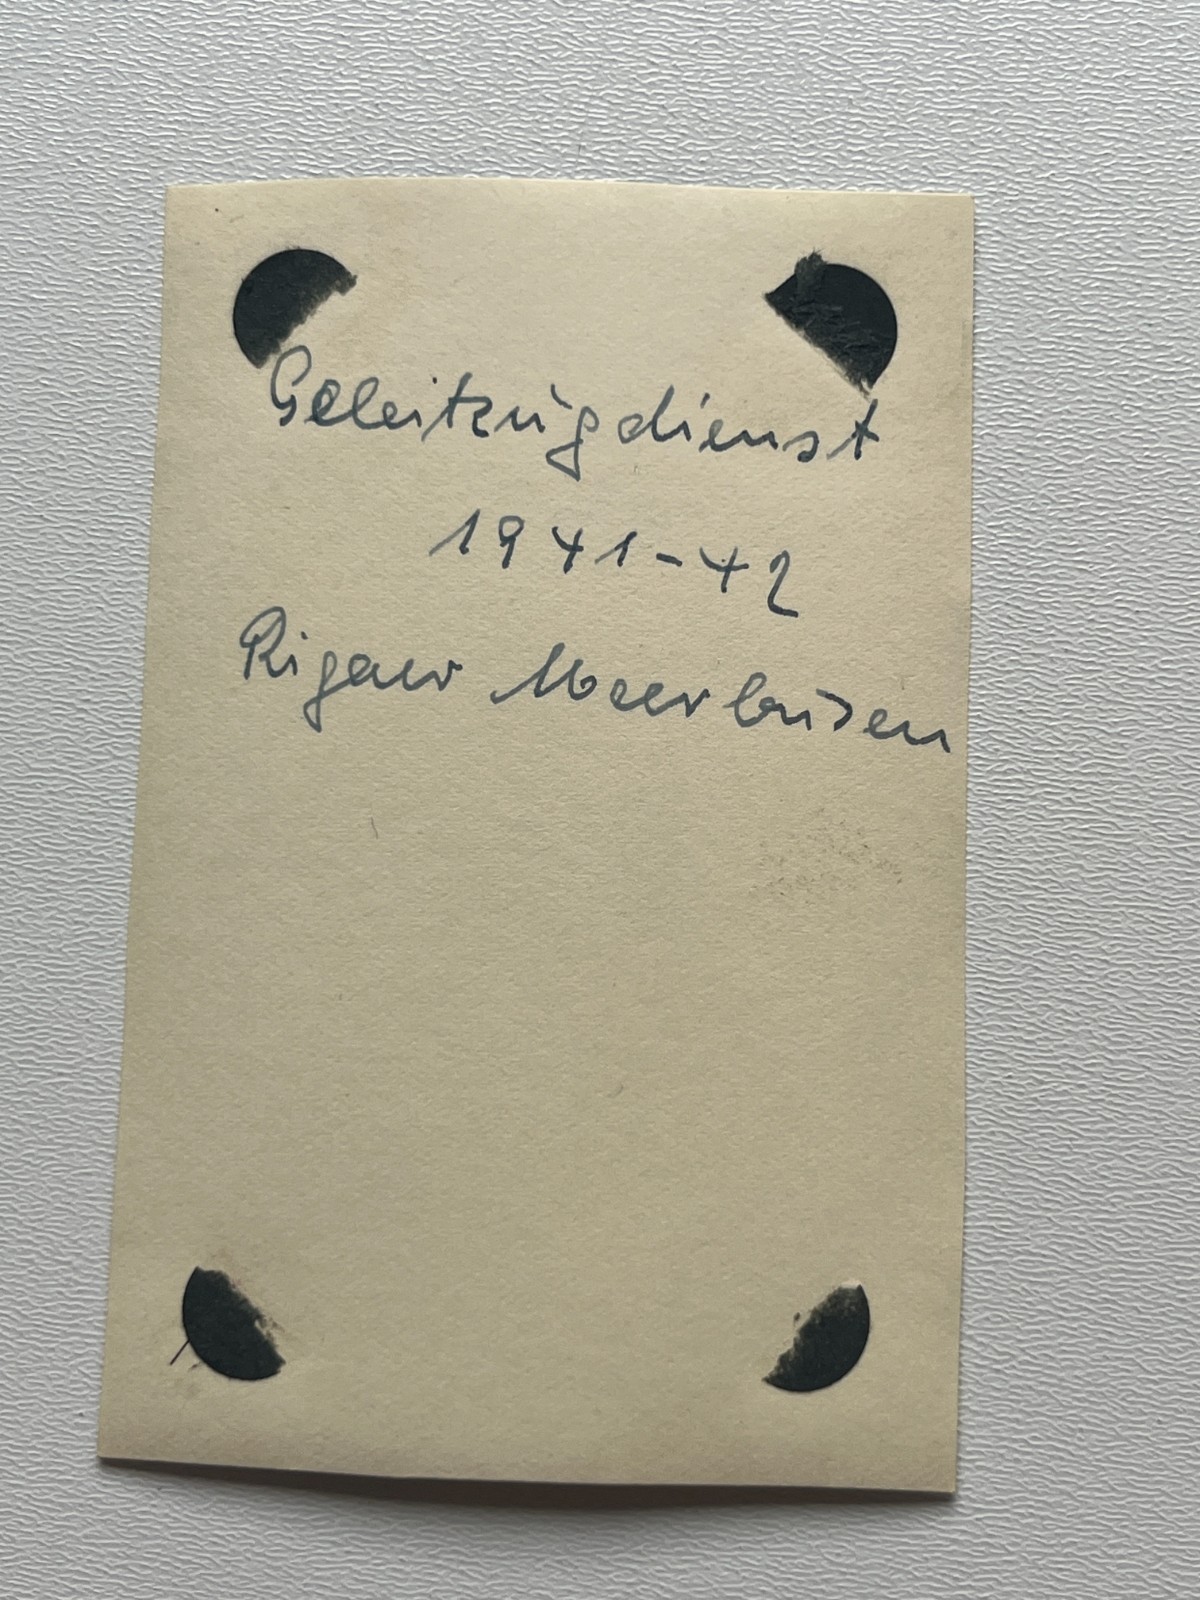 Geleitzugdienst
1941-42
Rigaer Meerbusen